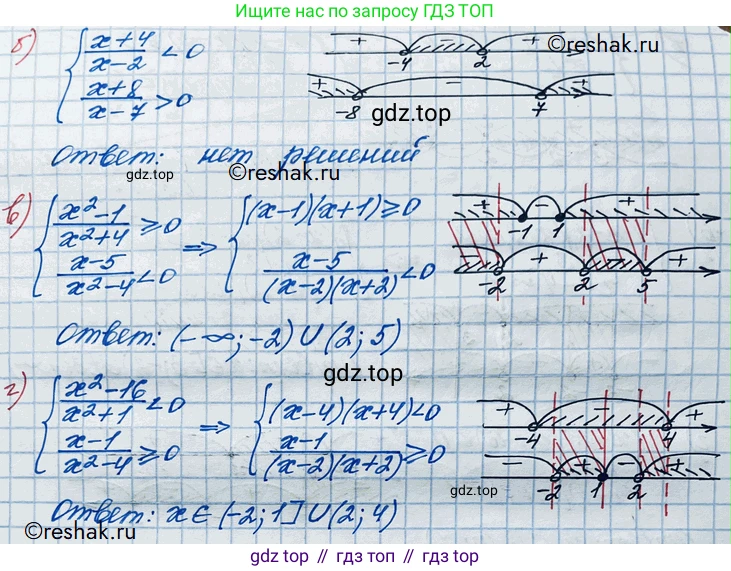 Ищите нас по запросу ГДЗ ТОП
б) { (x+4)/(x-2) < 0
(x+8)/(x-7) > 0
+ - + -4 2
+ - + -8 7
©reshak.ru
gdz.top
Ответ: нет решений
gdz.top
©reshak.ru
в) { (x²-1)/(x²+4) ≥ 0 ⇒ { (x-1)(x+1) ≥ 0
(x-5)/(x²-4) < 0 (x-5)/((x-2)(x+2)) < 0
+ - + -1 1
- + - + -2 2 5
Ответ: (-∞; -2) ∪ (2; 5)
gdz.top
г) { (x²-16)/(x²+1) < 0 ⇒ { (x-4)(x+4) < 0
(x-1)/(x²-4) ≥ 0 (x-1)/((x-2)(x+2)) ≥ 0
+ - + -4 4
- + - + -2 1 2
gdz.top
Ответ: x ∈ (-2; 1] ∪ (2; 4)
©reshak.ru
gdz.top // гдз.топ // gdz.top